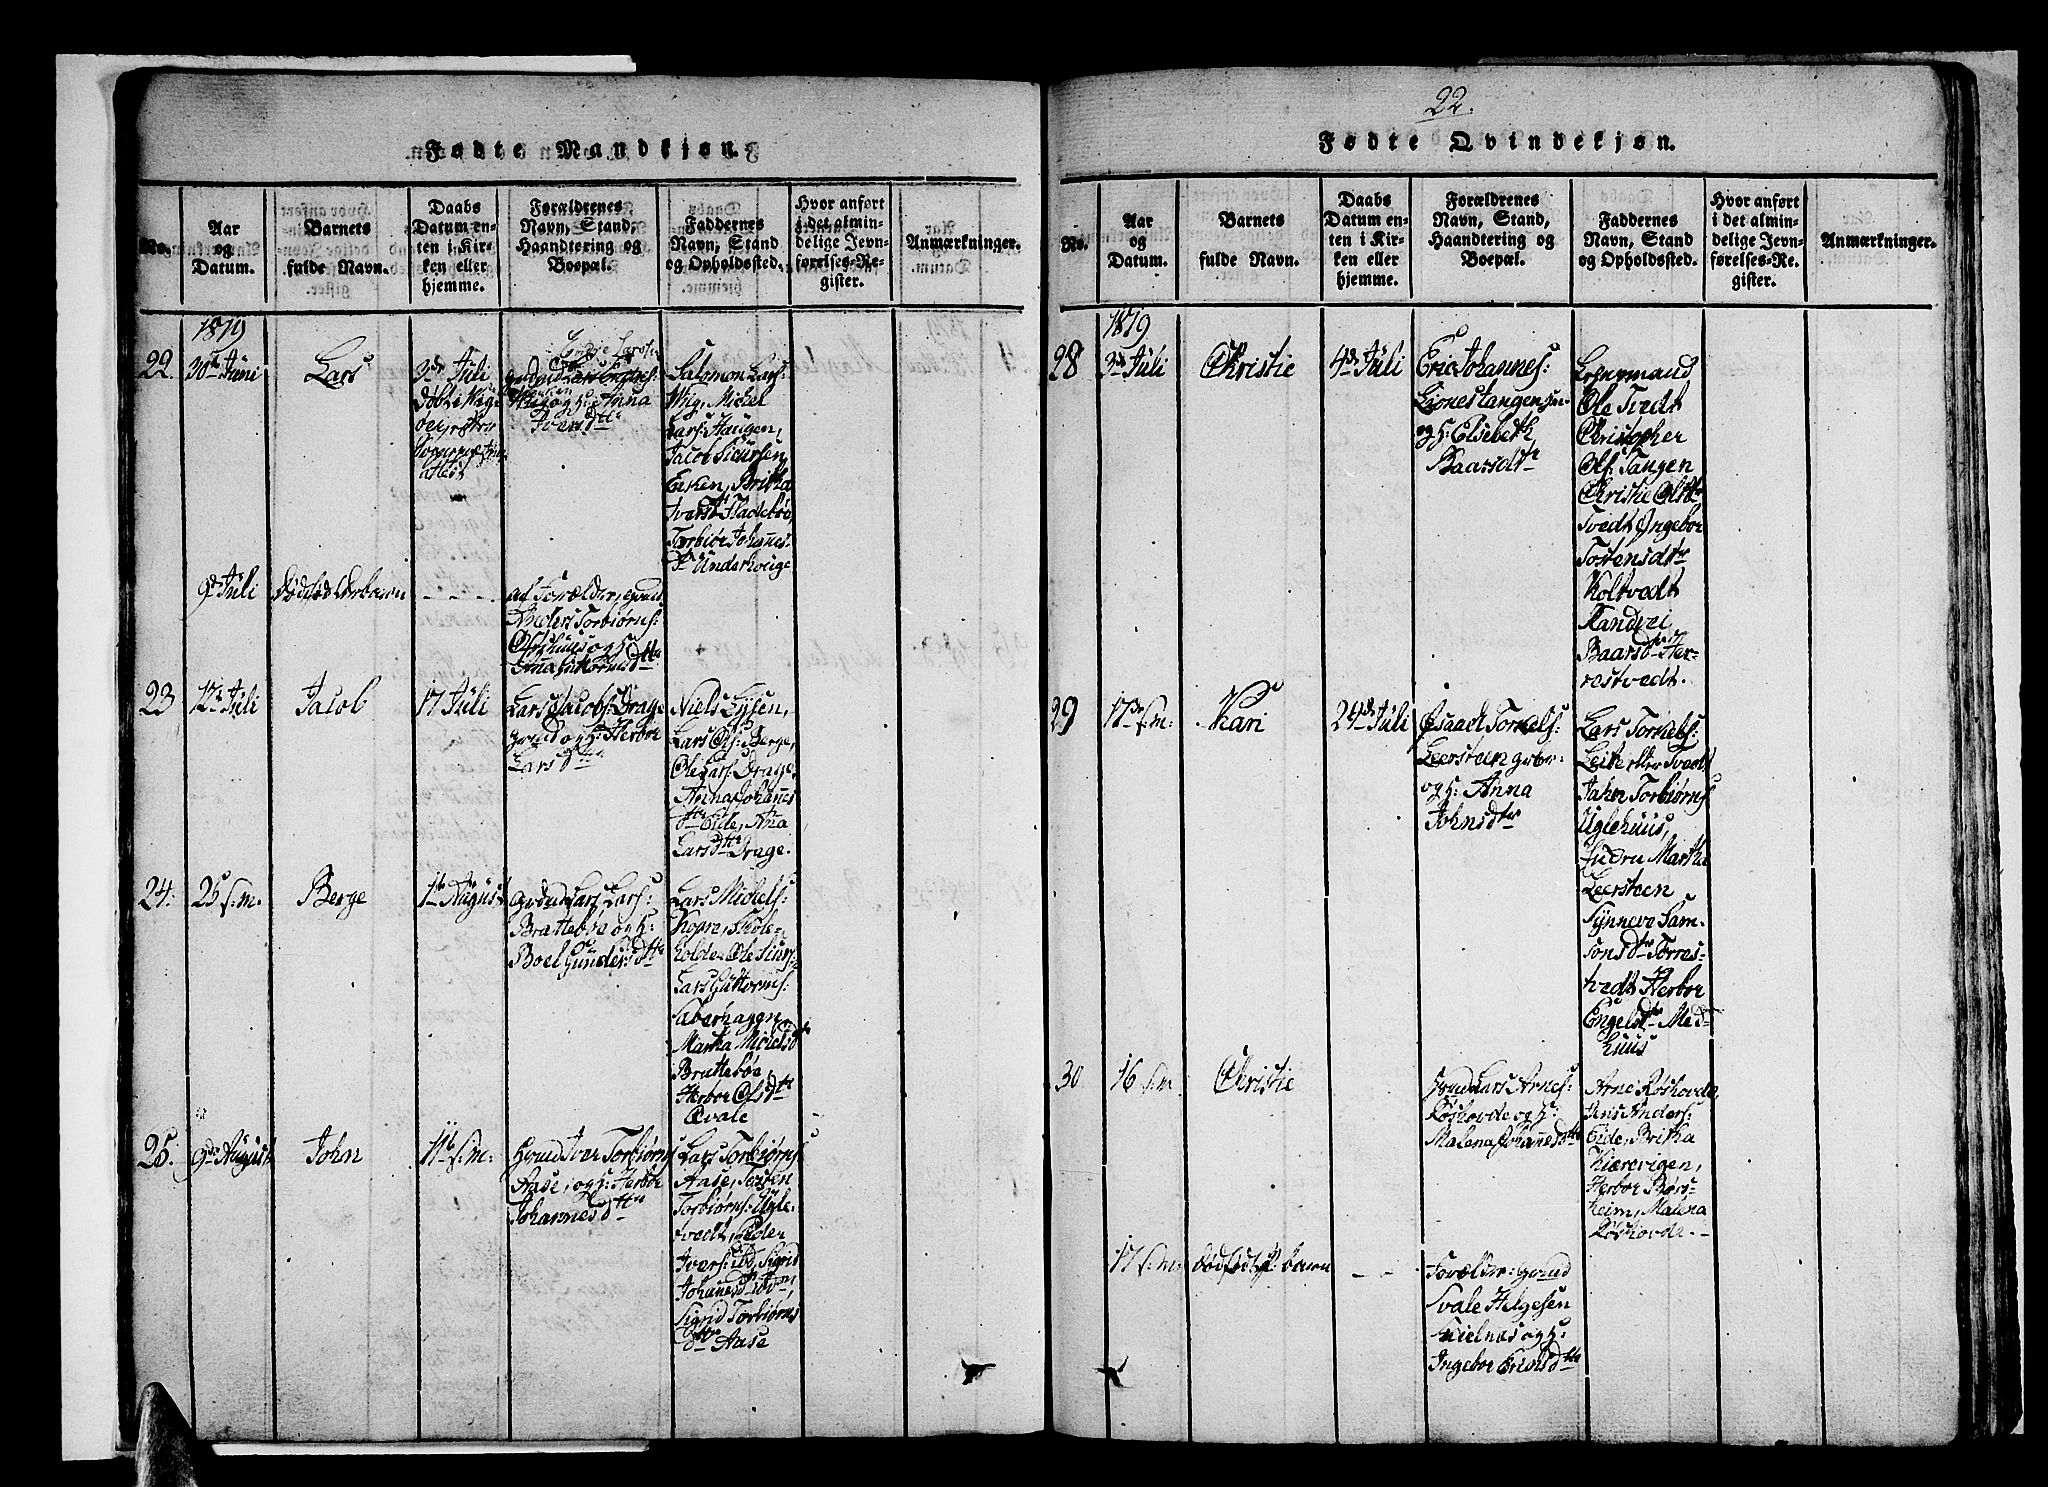 Fødte Mandkjøn.
No.
Aar
og
Datum.
Barnets
fulde Navn.
Daabs
Datum en-
ten i Kir-
ken eller
hjemme.
Forældrenes
Navn, Stand,
Haandtering og
Boepæl.
Faddernes
Navn, Stand
og Opholdssted.
Hvor anført
i det almin-
delige Jevn-
førelses-Re-
gister.
Anmærkninger.
1819
22.
30te Juni
Lars
3de Juli
Iversdttr
Salomon Lars:
Wiig, Michel
Lars: Haugen,
Jacob Siursen
Eken, Britha
Iversd Fladebøe,
Torbiør Johannes-
dr Underhouge
9de Juli
dødfød Drbarn
- - -
af Forælder,
Anders Torbiørns:
og H:
Anna Guttormsdttr
23
12te Juli
Jacob
17 Juli
Lars Jacobs: Drage
grmd og H: Herbor
Larsdttr
Niels Eysen,
Lars Ols: Berge,
Ole Lars: Drage,
Anna Johannes
dttr Eide, Ana
Larsdttr Drage.
24.
25 s.m.
Berge
1te August
grmd Lars Lars:
Brattebøe og H:
Boel Gundersdttr
Lars Michels:
Kopre, Skole-
holder Ole Siurs:
Lars Guttorms:
Aaberhagen,
Martha Michelsd
Brattebøe,
Herbor Olsdttr
Qvale
25.
9de August
John
11te s.m:
Grmd Iver Torbiørns:
Aase, og H: Herbor
Johannesdttr
Lars Torbiørns:
Aase, Torsten
Torbiørns: Ugle-
tvedt, Peder
Ivers: ibd, Sigrid
Johanesd ibdm,
Sigrid Torbiørns
dttr Aase
22.
Fødte Qvindekjøn.
No.
Aar
og
Datum.
Barnets
fulde Navn.
Daabs
Datum en-
ten i Kir-
ken eller
hjemme.
Forældrenes
Navn, Stand,
Haandtering og
Boepæl.
Faddernes
Navn, Stand
og Opholdssted.
Hvor anført
i det almin-
delige Jevn-
førelses-Re-
gister.
Anmærkninger.
1819
28
3de Juli
Christie
4de Juli
Eric Johannes:
Lionestangen
og H: Elsebeth
Baarsdtr
Legnsmand
Ole Tvedt
Christopher
Ols: Tangen
Christie Olsdttr
Tvedt Ingebor
Tostensdtr
Holtvedt
Randvei
Baarsdtr Her-
restvedt.
29
17de s.m.
Kari
24de Juli
Isaach Torkels:
Leersteen
og H: Anna
Johnsdtr
Lars Torkels:
Leite eller Tvedt
Jahn Torbiørns
Uglehuus,
Endru Martha
Leersteen
Synneve Sam-
sonsdtr Torres-
tvedt Herbor
Engelsdtr Med-
huus
30
16 s.m
Christie
Grmd Lars Arnes:
Røshovde og H:
Malena Johanesdttr
Arne Røshovde,
Jens Anders:
Eide, Britha
Kiærevigen,
Herbor Børs-
heim, Malena
Røshovde.
17 s.m.
dødfødt P: barn
- -
Forælder: grmd
Svale Helgesen
og H:
Ingebor Ericsdttr